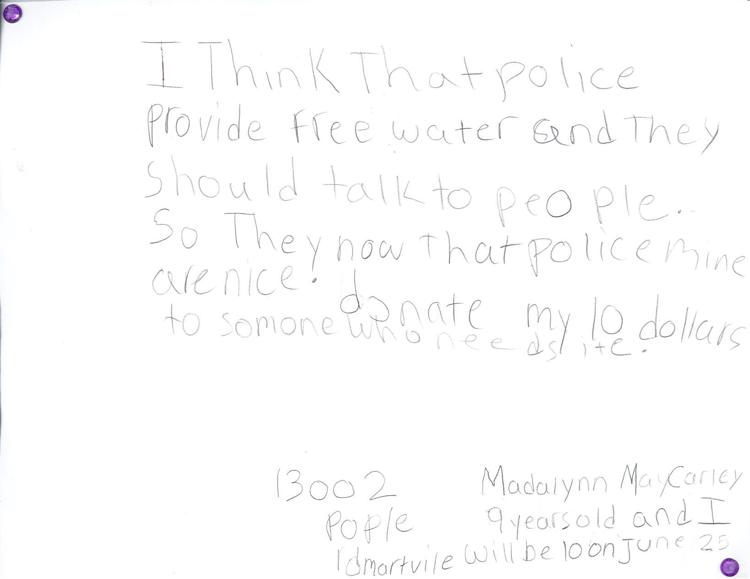 I Think That police
provide free water and They
should talk to people..
So They now That police mine
are nice! donate my 10 dollars
to somone who needs ite.
13002
Pople
Idmartvile
Madalynn May Carley
9 years old and I
will be 10 on June 25